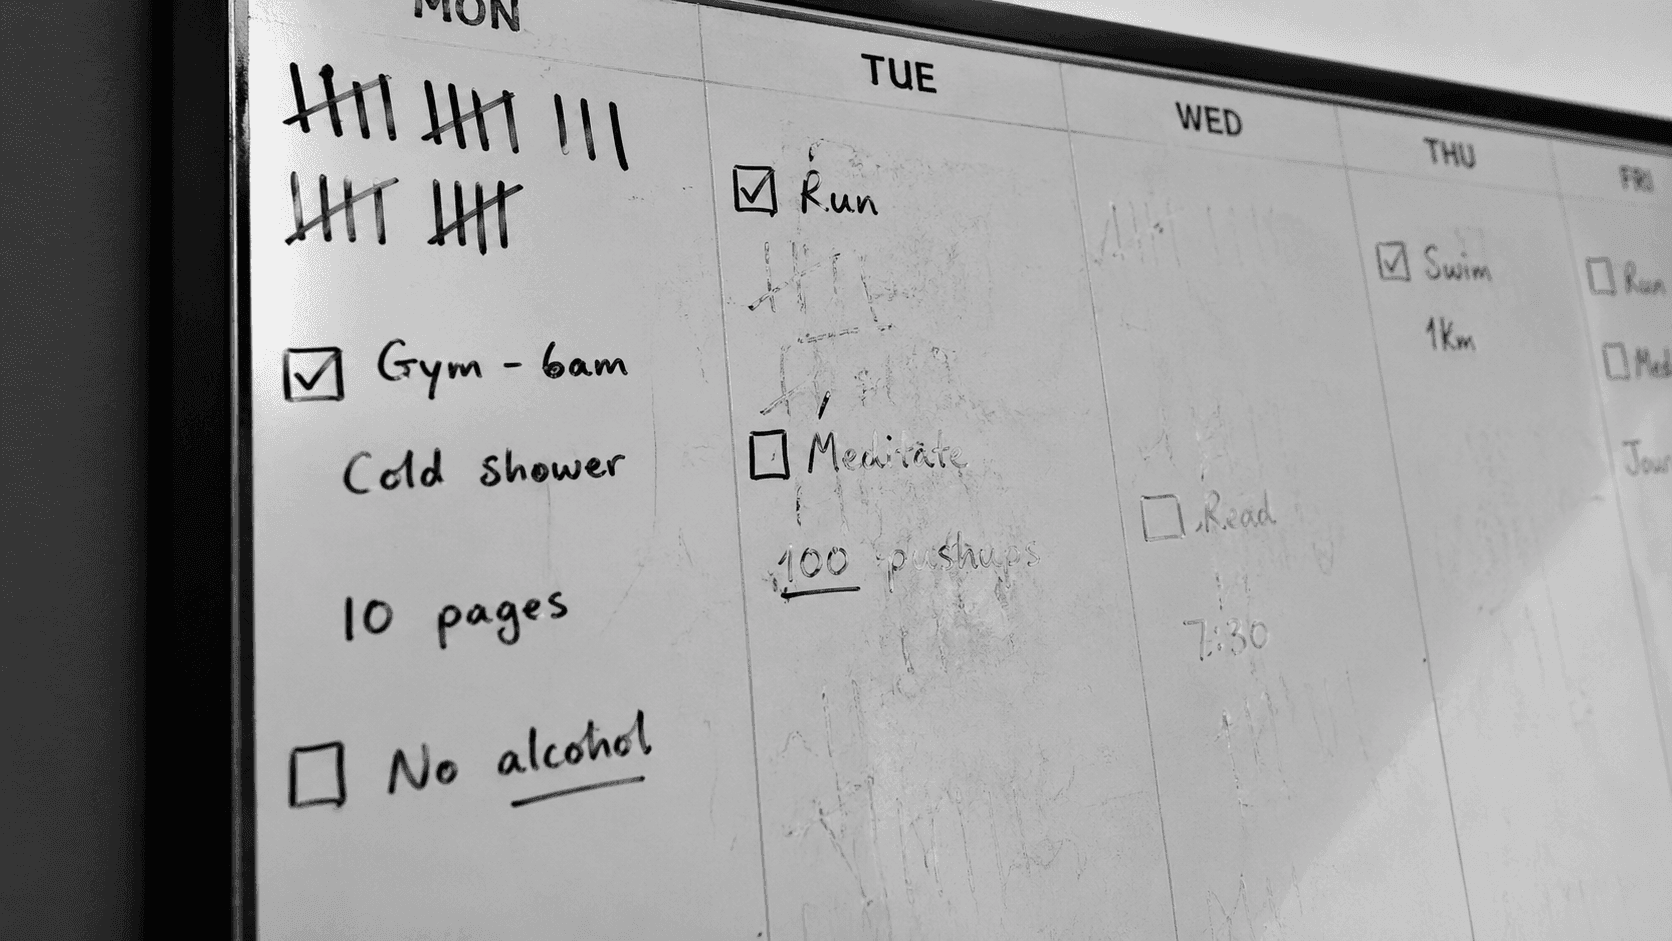 MON
Gym - 6am
Cold shower
10 pages
No alcohol
TUE
Run
Meditate
100 pushups
WED
Read
7:30
THU
Swim
1Km
FRI
Run